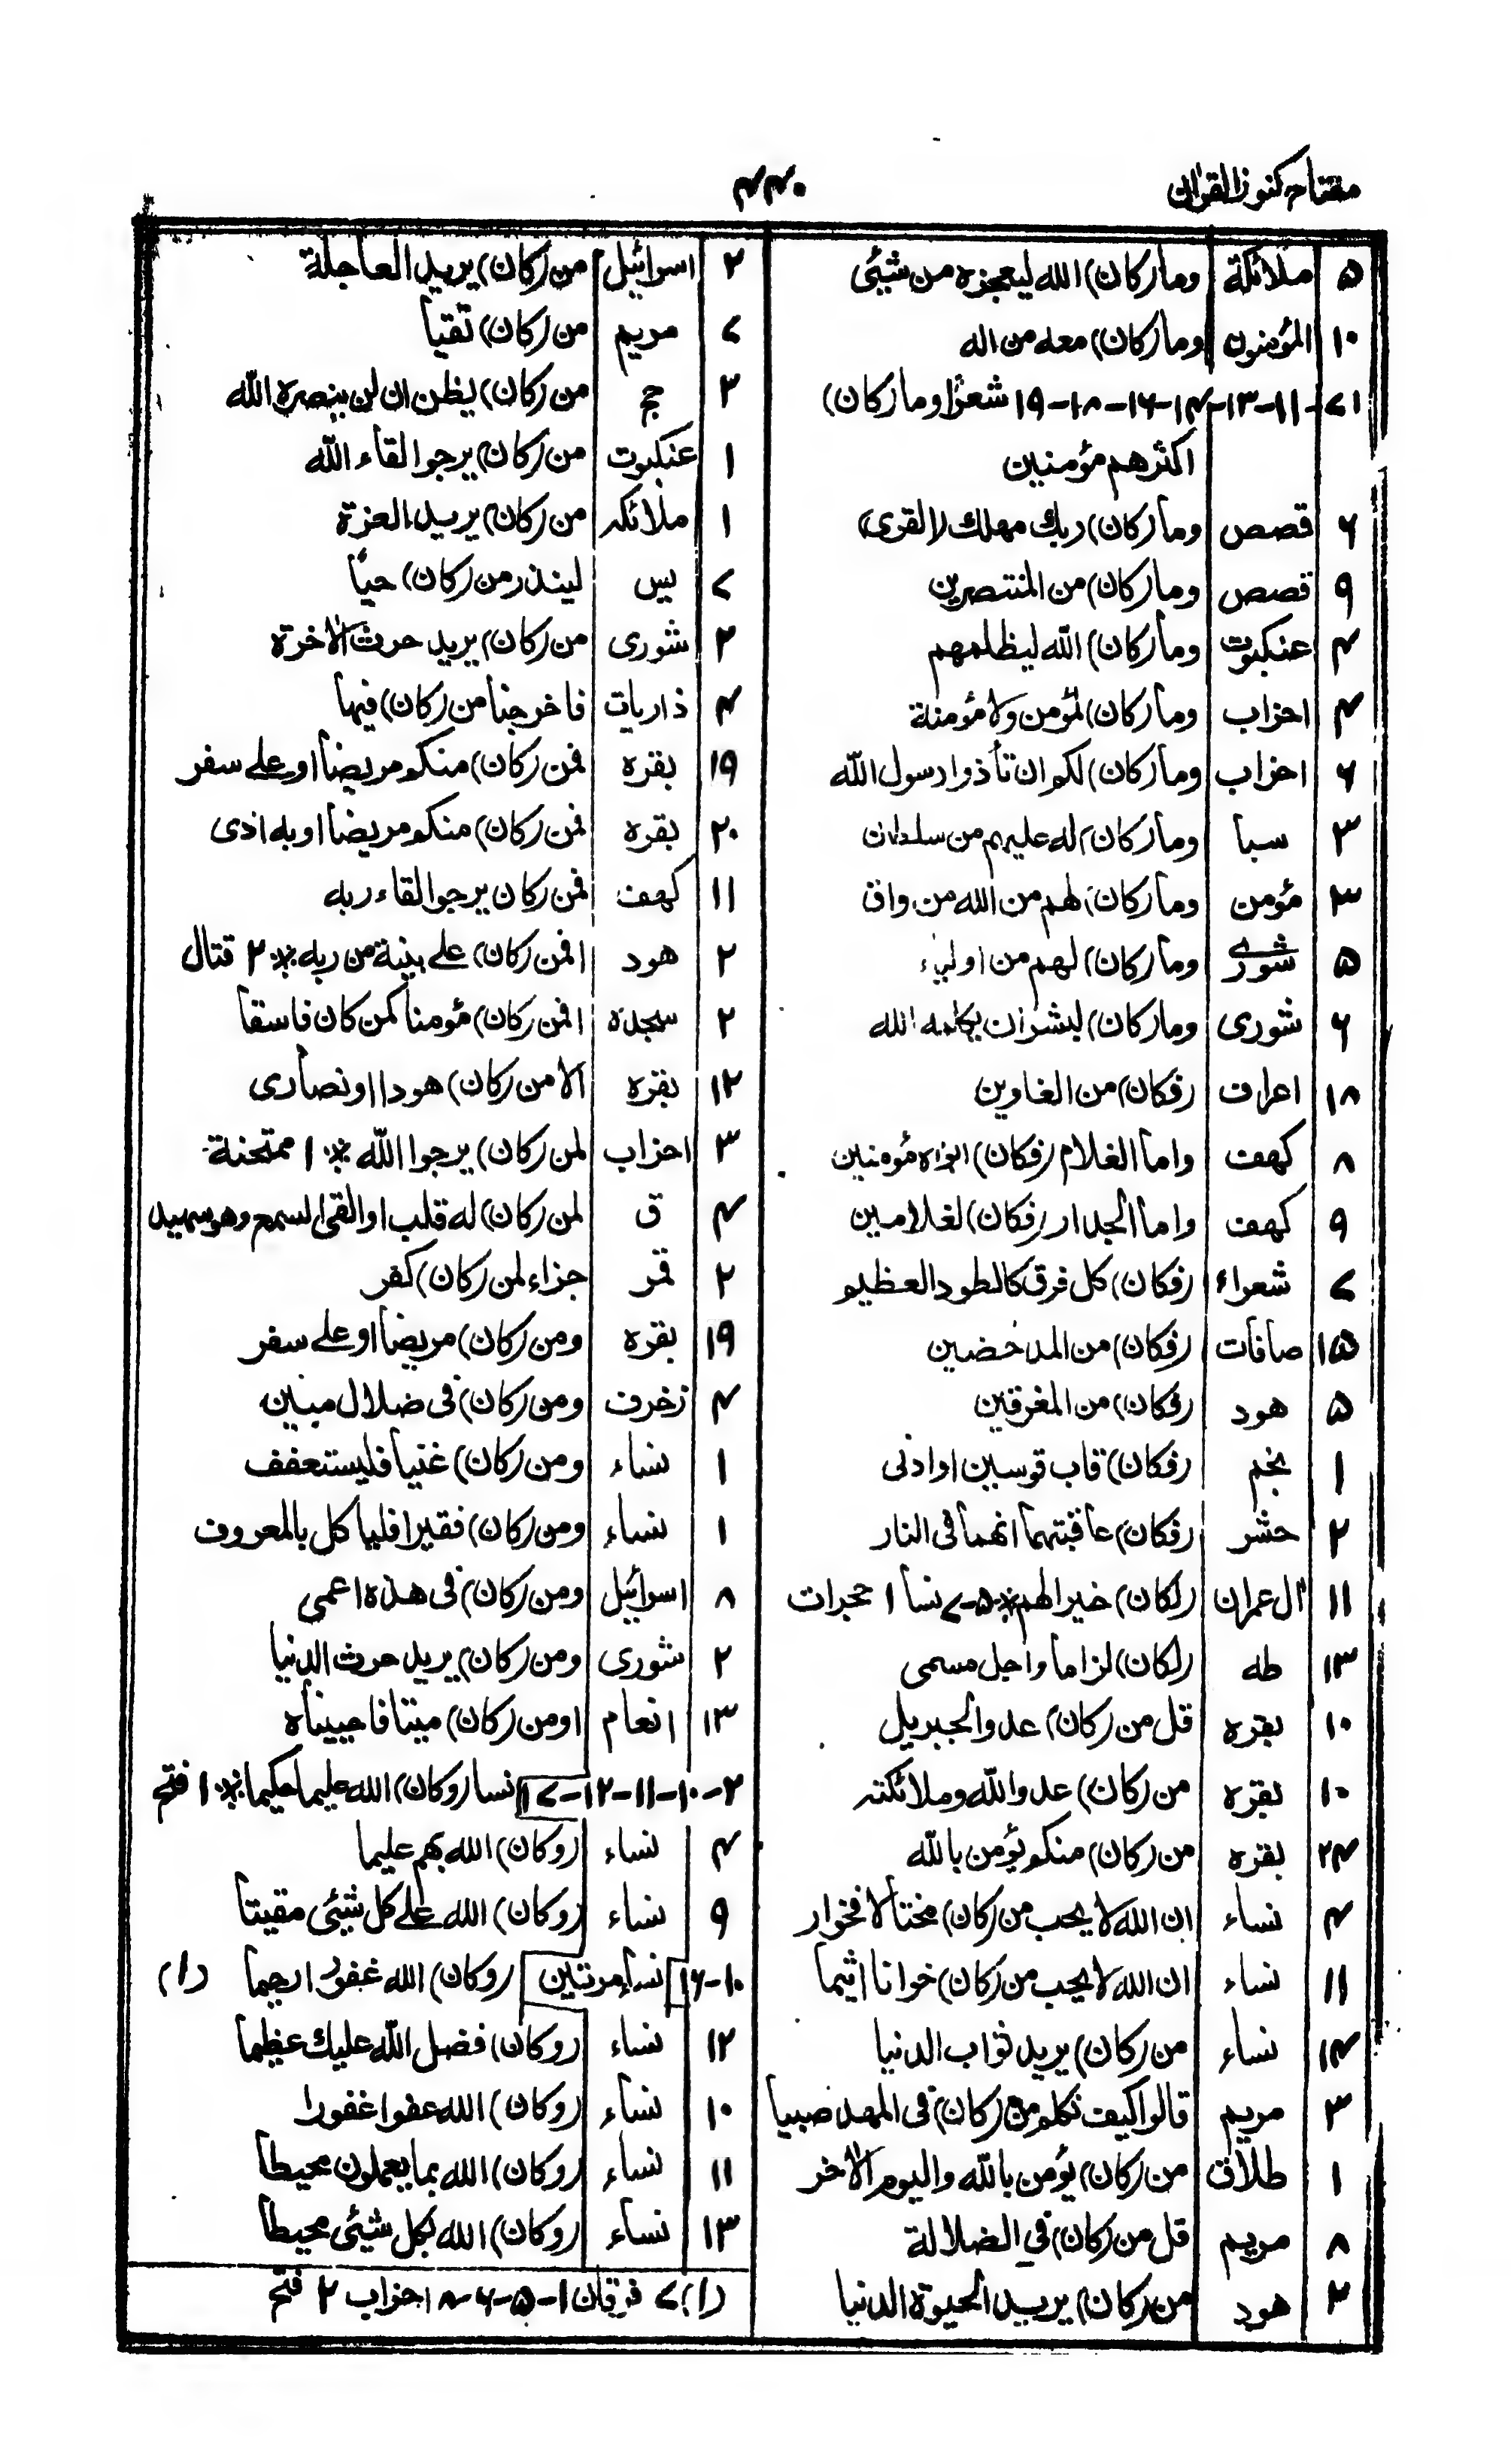 مفتاح کنوز القرآن
۴۴۰
۵ ملائکة وما (کان) الله لیعجزه من شیئی
۱۰ المؤمنون وما (کان) معه من اله
۷-۱۱-۱۳-۱۴-۱۶-۱۸-۱۹ شعرا وما (کان)
اکثرهم مؤمنین
۶ قصص وما (کان) ربك مهلك (القری)
۹ قصص وما (کان) من المنتصرین
۴ عنکبوت وما (کان) الله لیظلمهم
۴ احزاب وما (کان) لمؤمن ولا مؤمنة
۶ احزاب وما (کان) لکم ان تأذوا رسول الله
۳ سبا وما (کان) له علیهم من سلطان
۳ مؤمن وما (کان) لهم من الله من واق
۵ شوری وما (کان) لهم من اولیاء
۶ شوری وما (کان) لبشر ان یکلمه الله
۱۸ اعراف (فکان) من الغاوین
۸ کهف واما الغلام (فکان) ابواه مؤمنین
۹ کهف واما الجدار (فکان) لغلامین
۷ شعراء (فکان) کل فرق کالطود العظیم
۱۵ صافات (فکان) من المدحضین
۵ هود (فکان) من المغرقین
۱ نجم (فکان) قاب قوسین او ادنی
۲ حشر (فکان) عاقبتهما انهما فی النار
۱۱ ال عمران (لکان) خیرا لهم * ۵-۷ نسا ۱ حجرات
۱۳ طه (لکان) لزاما واجل مسمی
۱۰ بقره قل من (کان) عدوا لجبریل
۱۰ بقره من (کان) عدوا لله وملائکته
۲۴ بقره من (کان) منکم یؤمن بالله
۴ نساء ان الله لا یحب من (کان) مختالا فخورا
۱۱ نساء ان الله لا یحب من (کان) خوانا اثیما
۱۴ نساء من (کان) یرید ثواب الدنیا
۳ مریم قالوا کیف نکلم من (کان) فی المهد صبیا
۱ طلاق من (کان) یؤمن بالله والیوم الاخر
۸ مریم قل من (کان) فی الضلالة
۲ هود من (کان) یرید الحیوة الدنیا
۲ اسرائیل من (کان) یرید العاجلة
۷ مریم من (کان) تقیا
۳ حج من (کان) یظن ان لن ینصره الله
۱ عنکبوت من (کان) یرجوا لقاء الله
۱ ملائکه من (کان) یرید العزة
۷ یس لینذر من (کان) حیا
۲ شوری من (کان) یرید حرث الاخرة
۴ ذاریات فاخرجنا من (کان) فیها
۱۹ بقره فمن (کان) منکم مریضا او علے سفر
۲۰ بقره فمن (کان) منکم مریضا او به اذی
۱۱ کهف فمن (کان یرجوا لقاء ربه
۲ هود افمن (کان) علے بینة من ربه * ۲ قتال
۲ سجدة افمن (کان) مؤمنا کمن کان فاسقا
۱۲ بقره الا من (کان) هودا او نصاری
۳ احزاب لمن (کان) یرجوا الله * ۱ ممتحنة
۴ ق لمن (کان) له قلب او القی السمع وهو شهید
۲ قمر جزاء لمن (کان) کفر
۱۹ بقره ومن (کان) مریضا او علے سفر
۴ زخرف ومن (کان) فی ضلال مبین
۱ نساء ومن (کان) غنیا فلیستعفف
۱ نساء ومن (کان) فقیرا فلیاکل بالمعروف
۸ اسرائیل ومن (کان) فی هذه اعمی
۲ شوری ومن (کان) یرید حرث الدنیا
۱۳ انعام اومن (کان) میتا فاحییناه
۲-۱۰-۱۱-۱۲-۱۷ نسا (وکان) الله علیما حکیما * ۱ فتح
۴ نساء (وکان) الله بهم علیما
۹ نساء (وکان) الله علے کل شیئی مقیتا
۱۰-۱۶ نساء مرتین (وکان) الله غفورا رحیما (۱)
۱۲ نساء (وکان) فضل الله علیك عظیما
۱۰ نساء (وکان) الله عفوا غفورا
۱۱ نساء (وکان) الله بما یعملون محیطا
۱۳ نساء (وکان) الله بکل شیئی محیطا
(۱) ۷ فرقان ۱-۵-۶-۸ احزاب ۲ فتح